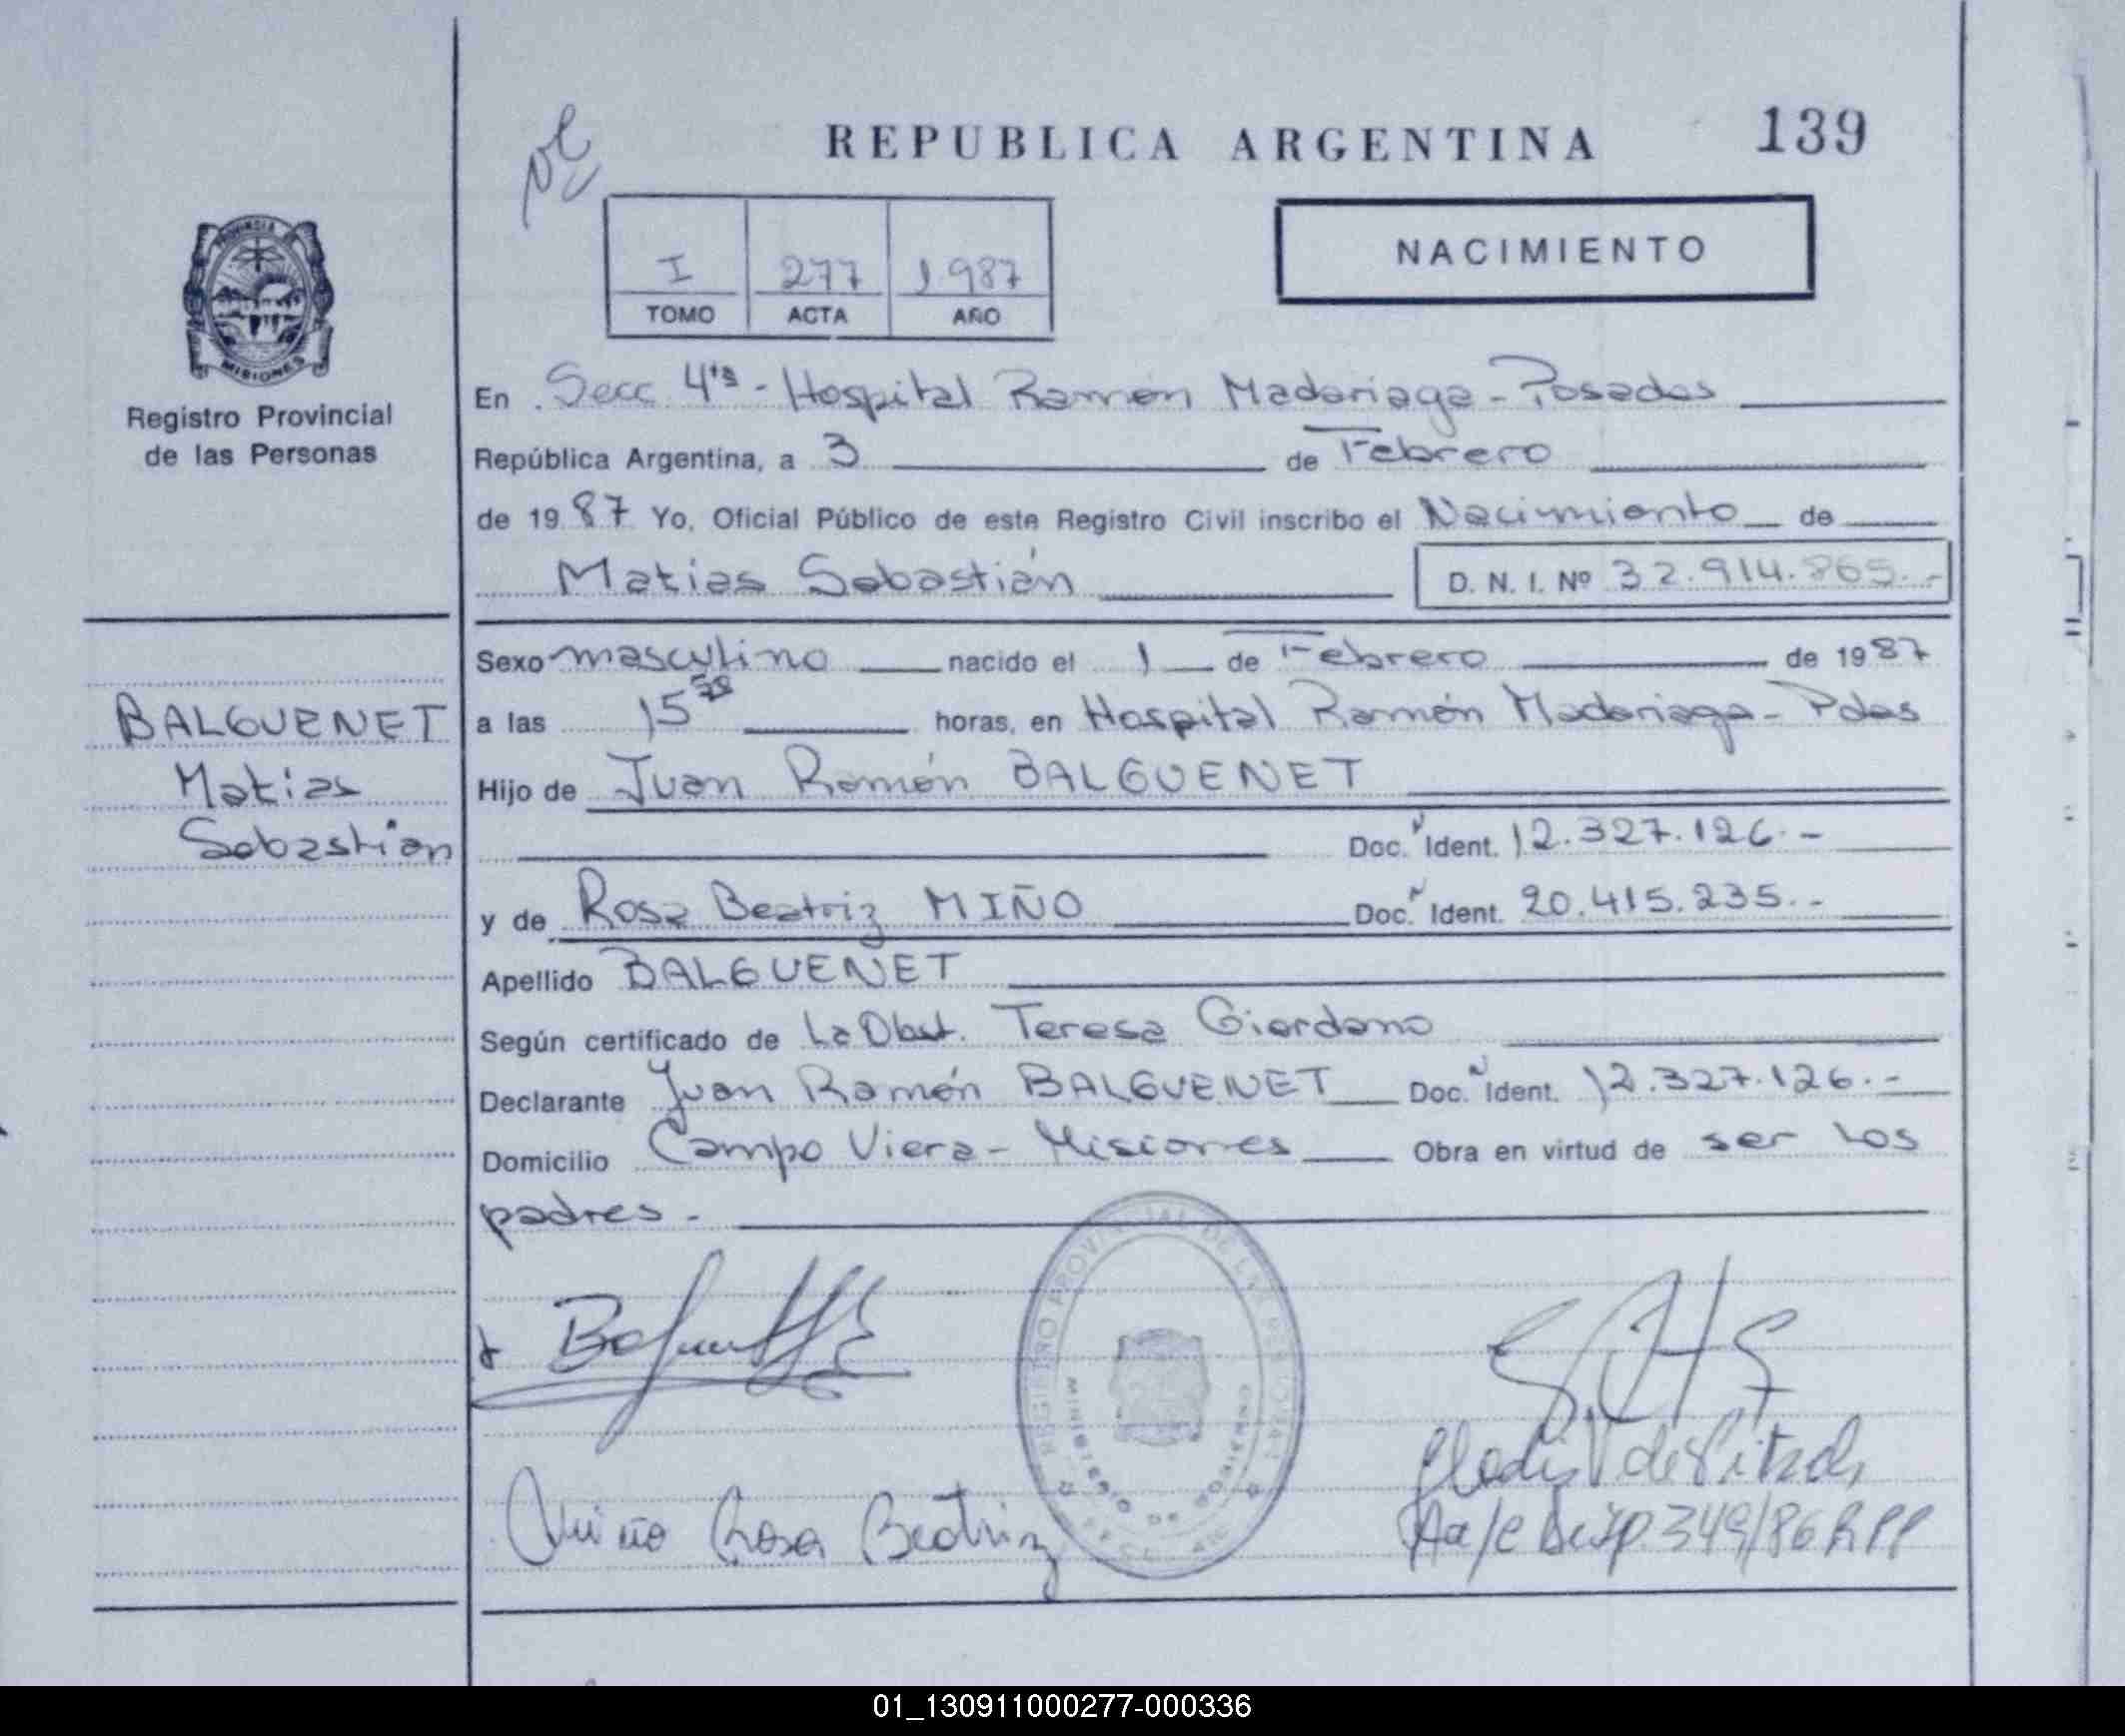 REPUBLICA ARGENTINA 139
NACIMIENTO
I 277 1987
TOMO ACTA AÑO
PROVINCIA DE
MISIONES
Registro Provincial
de las Personas
En Secc 4ta - Hospital Ramón Madariaga - Posadas
República Argentina, a 3 de Febrero
de 1987 Yo, Oficial Público de este Registro Civil inscribo el Nacimiento de
Matias Sebastián D. N. I. Nº 32.914.865.-
Sexo masculino nacido el 1 de Febrero de 1987
a las 15 horas, en Hospital Ramón Madariaga - Pdas
Hijo de Juan Ramón BALGUENET
Doc. Ident. 12.327.126.-
y de Rosa Beatriz MIÑO Doc. Ident. 20.415.235.-
Apellido BALGUENET
Según certificado de La Obst. Teresa Giordano
Declarante Juan Ramón BALGUENET Doc. Ident. 12.327.126.-
Domicilio Campo Viera - Misiones Obra en virtud de ser los
padres.-
BALGUENET
Matias
Sebastián
REGISTRO PROVINCIAL DE LAS PERSONAS
MINISTERIO DE GOBIERNO
Miño Rosa Beatriz
A a/c Disp. 349/86 RPP
01_130911000277-000336